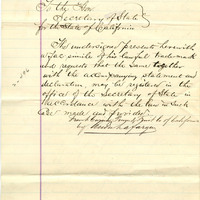 To the Hon
Secretary of State
for the State of California
The undersigned presents herewith
a fac simile of his lawful trademark
and requests that the same together
with the accompanying statement and
declaration, may be registered in the
office of the Secretary of State in
accordance with the law in such
case made and provided
by